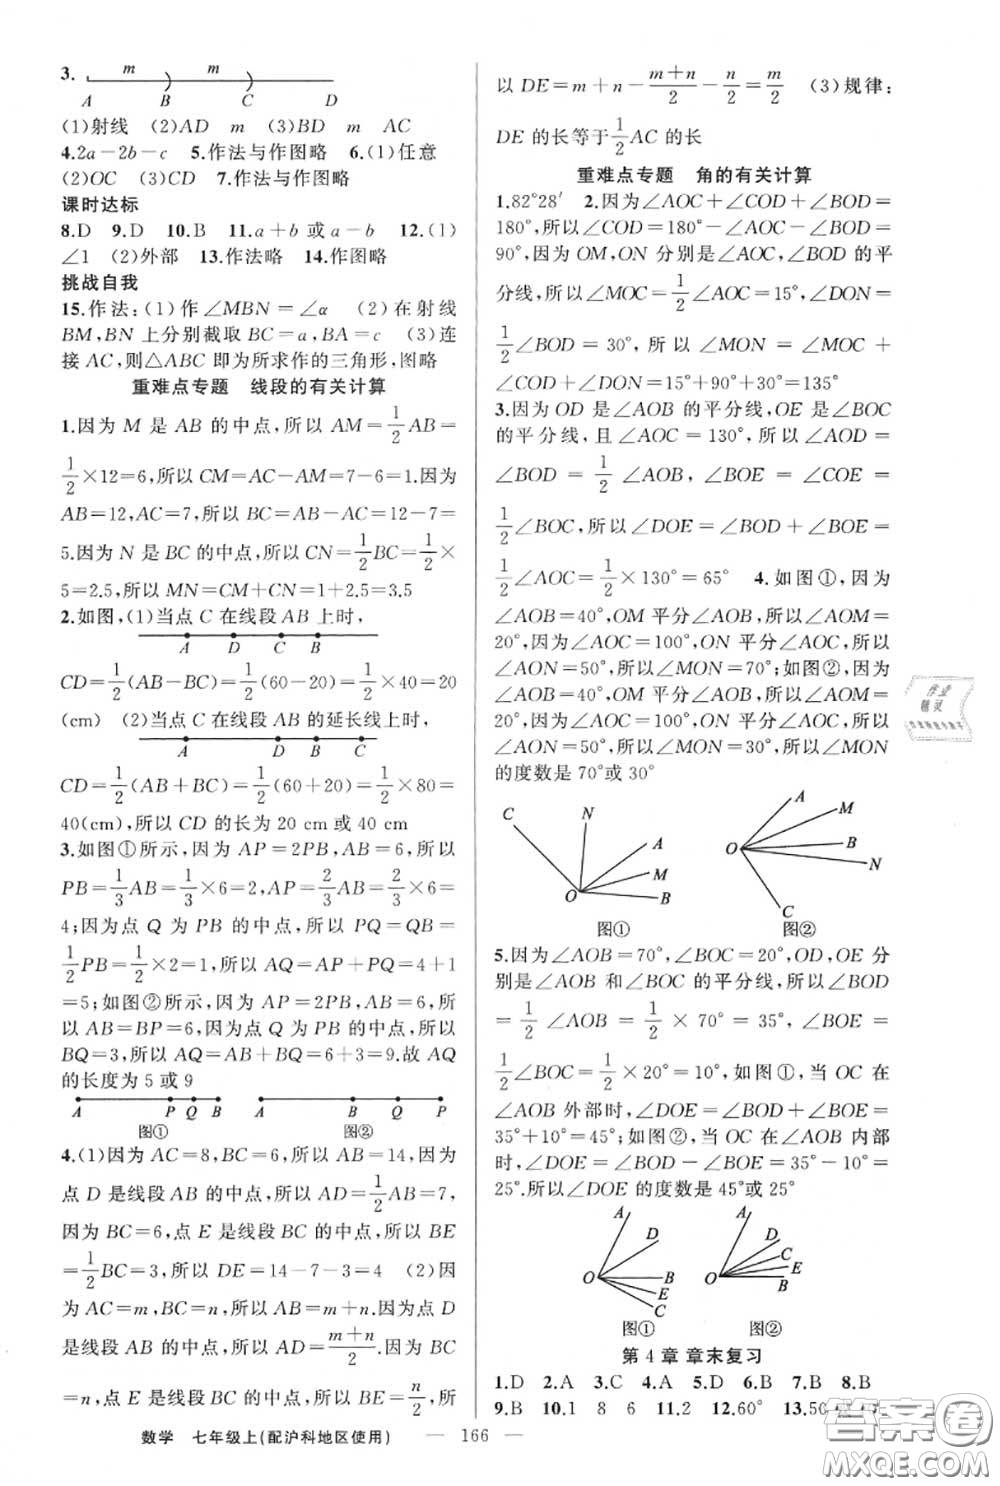 3.
m m
A B C D
(1)射线 (2)AD m (3)BD m AC
4.2a－2b－c 5.作法与作图略 6.(1)任意
(2)OC (3)CD 7.作法与作图略
课时达标
8.D 9.D 10.B 11.a＋b 或 a－b 12.(1)
∠1 (2)外部 13.作法略 14.作图略
挑战自我
15.作法:(1)作∠MBN＝∠α (2)在射线
BM,BN 上分别截取 BC＝a,BA＝c (3)连
接 AC,则△ABC 即为所求作的三角形,图略
重难点专题 线段的有关计算
1.因为 M 是 AB 的中点,所以 AM＝1/2 AB＝
1/2×12＝6,所以 CM＝AC－AM＝7－6＝1.因为
AB＝12,AC＝7,所以 BC＝AB－AC＝12－7＝
5.因为 N 是 BC 的中点,所以 CN＝1/2 BC＝1/2×
5＝2.5,所以 MN＝CM＋CN＝1＋2.5＝3.5
2.如图,(1)当点 C 在线段 AB 上时,
A D C B
CD＝1/2(AB－BC)＝1/2(60－20)＝1/2×40＝20
(cm) (2)当点 C 在线段 AB 的延长线上时,
A D B C
CD＝1/2(AB＋BC)＝1/2(60＋20)＝1/2×80＝
40(cm),所以 CD 的长为 20 cm 或 40 cm
3.如图①所示,因为 AP＝2PB,AB＝6,所以
PB＝1/3 AB＝1/3×6＝2,AP＝2/3 AB＝2/3×6＝
4;因为点 Q 为 PB 的中点,所以 PQ＝QB＝
1/2 PB＝1/2×2＝1,所以 AQ＝AP＋PQ＝4＋1
＝5;如图②所示,因为 AP＝2PB,AB＝6,所
以 AB＝BP＝6,因为点 Q 为 PB 的中点,所以
BQ＝3,所以 AQ＝AB＋BQ＝6＋3＝9.故 AQ
的长度为 5 或 9
A P Q B A B Q P
图① 图②
4.(1)因为 AC＝8,BC＝6,所以 AB＝14,因为
点 D 是线段 AB 的中点,所以 AD＝1/2 AB＝7,
因为 BC＝6,点 E 是线段 BC 的中点,所以 BE
＝1/2 BC＝3,所以 DE＝14－7－3＝4 (2)因
为 AC＝m,BC＝n,所以 AB＝m＋n.因为点 D
是线段 AB 的中点,所以 AD＝(m＋n)/2.因为 BC
＝n,点 E 是线段 BC 的中点,所以 BE＝n/2,所
以 DE＝m＋n－(m＋n)/2－n/2＝m/2 (3)规律:
DE 的长等于1/2 AC 的长
重难点专题 角的有关计算
1.82°28′ 2.因为∠AOC＋∠COD＋∠BOD＝
180°,所以∠COD＝180°－∠AOC－∠BOD＝
90°,因为 OM,ON 分别是∠AOC,∠BOD 的平
分线,所以∠MOC＝1/2∠AOC＝15°,∠DON＝
1/2∠BOD＝30°,所以∠MON＝∠MOC＋
∠COD＋∠DON＝15°＋90°＋30°＝135°
3.因为 OD 是∠AOB 的平分线,OE 是∠BOC
的平分线,且∠AOC＝130°,所以∠AOD＝
∠BOD＝1/2∠AOB,∠BOE＝∠COE＝
1/2∠BOC,所以∠DOE＝∠BOD＋∠BOE＝
1/2∠AOC＝1/2×130°＝65° 4.如图①,因为
∠AOB＝40°,OM 平分∠AOB,所以∠AOM＝
20°,因为∠AOC＝100°,ON 平分∠AOC,所以
∠AON＝50°,所以∠MON＝70°;如图②,因为
∠AOB＝40°,OM 平分∠AOB,所以∠AOM＝
20°,因为∠AOC＝100°,ON 平分∠AOC,所以
∠AON＝50°,所以∠MON＝30°,所以∠MON
的度数是 70°或 30°
C N A M B O
A M B N O C
图① 图②
5.因为∠AOB＝70°,∠BOC＝20°,OD,OE 分
别是∠AOB 和∠BOC 的平分线,所以∠BOD
＝1/2∠AOB＝1/2×70°＝35°,∠BOE＝
1/2∠BOC＝1/2×20°＝10°,如图①,当 OC 在
∠AOB 外部时,∠DOE＝∠BOD＋∠BOE＝
35°＋10°＝45°;如图②,当 OC 在∠AOB 内部
时,∠DOE＝∠BOD－∠BOE＝35°－10°＝
25°.所以∠DOE 的度数是 45°或 25°
A D O B E C
A D C E B O
图① 图②
第 4 章 章末复习
1.D 2.A 3.C 4.A 5.D 6.B 7.B 8.B
9.B 10.1 8 6 11.2 12.60° 13.50
数学 七年级上(配沪科地区使用) — 166 —
作业
精灵
答案卷
MXQE.COM